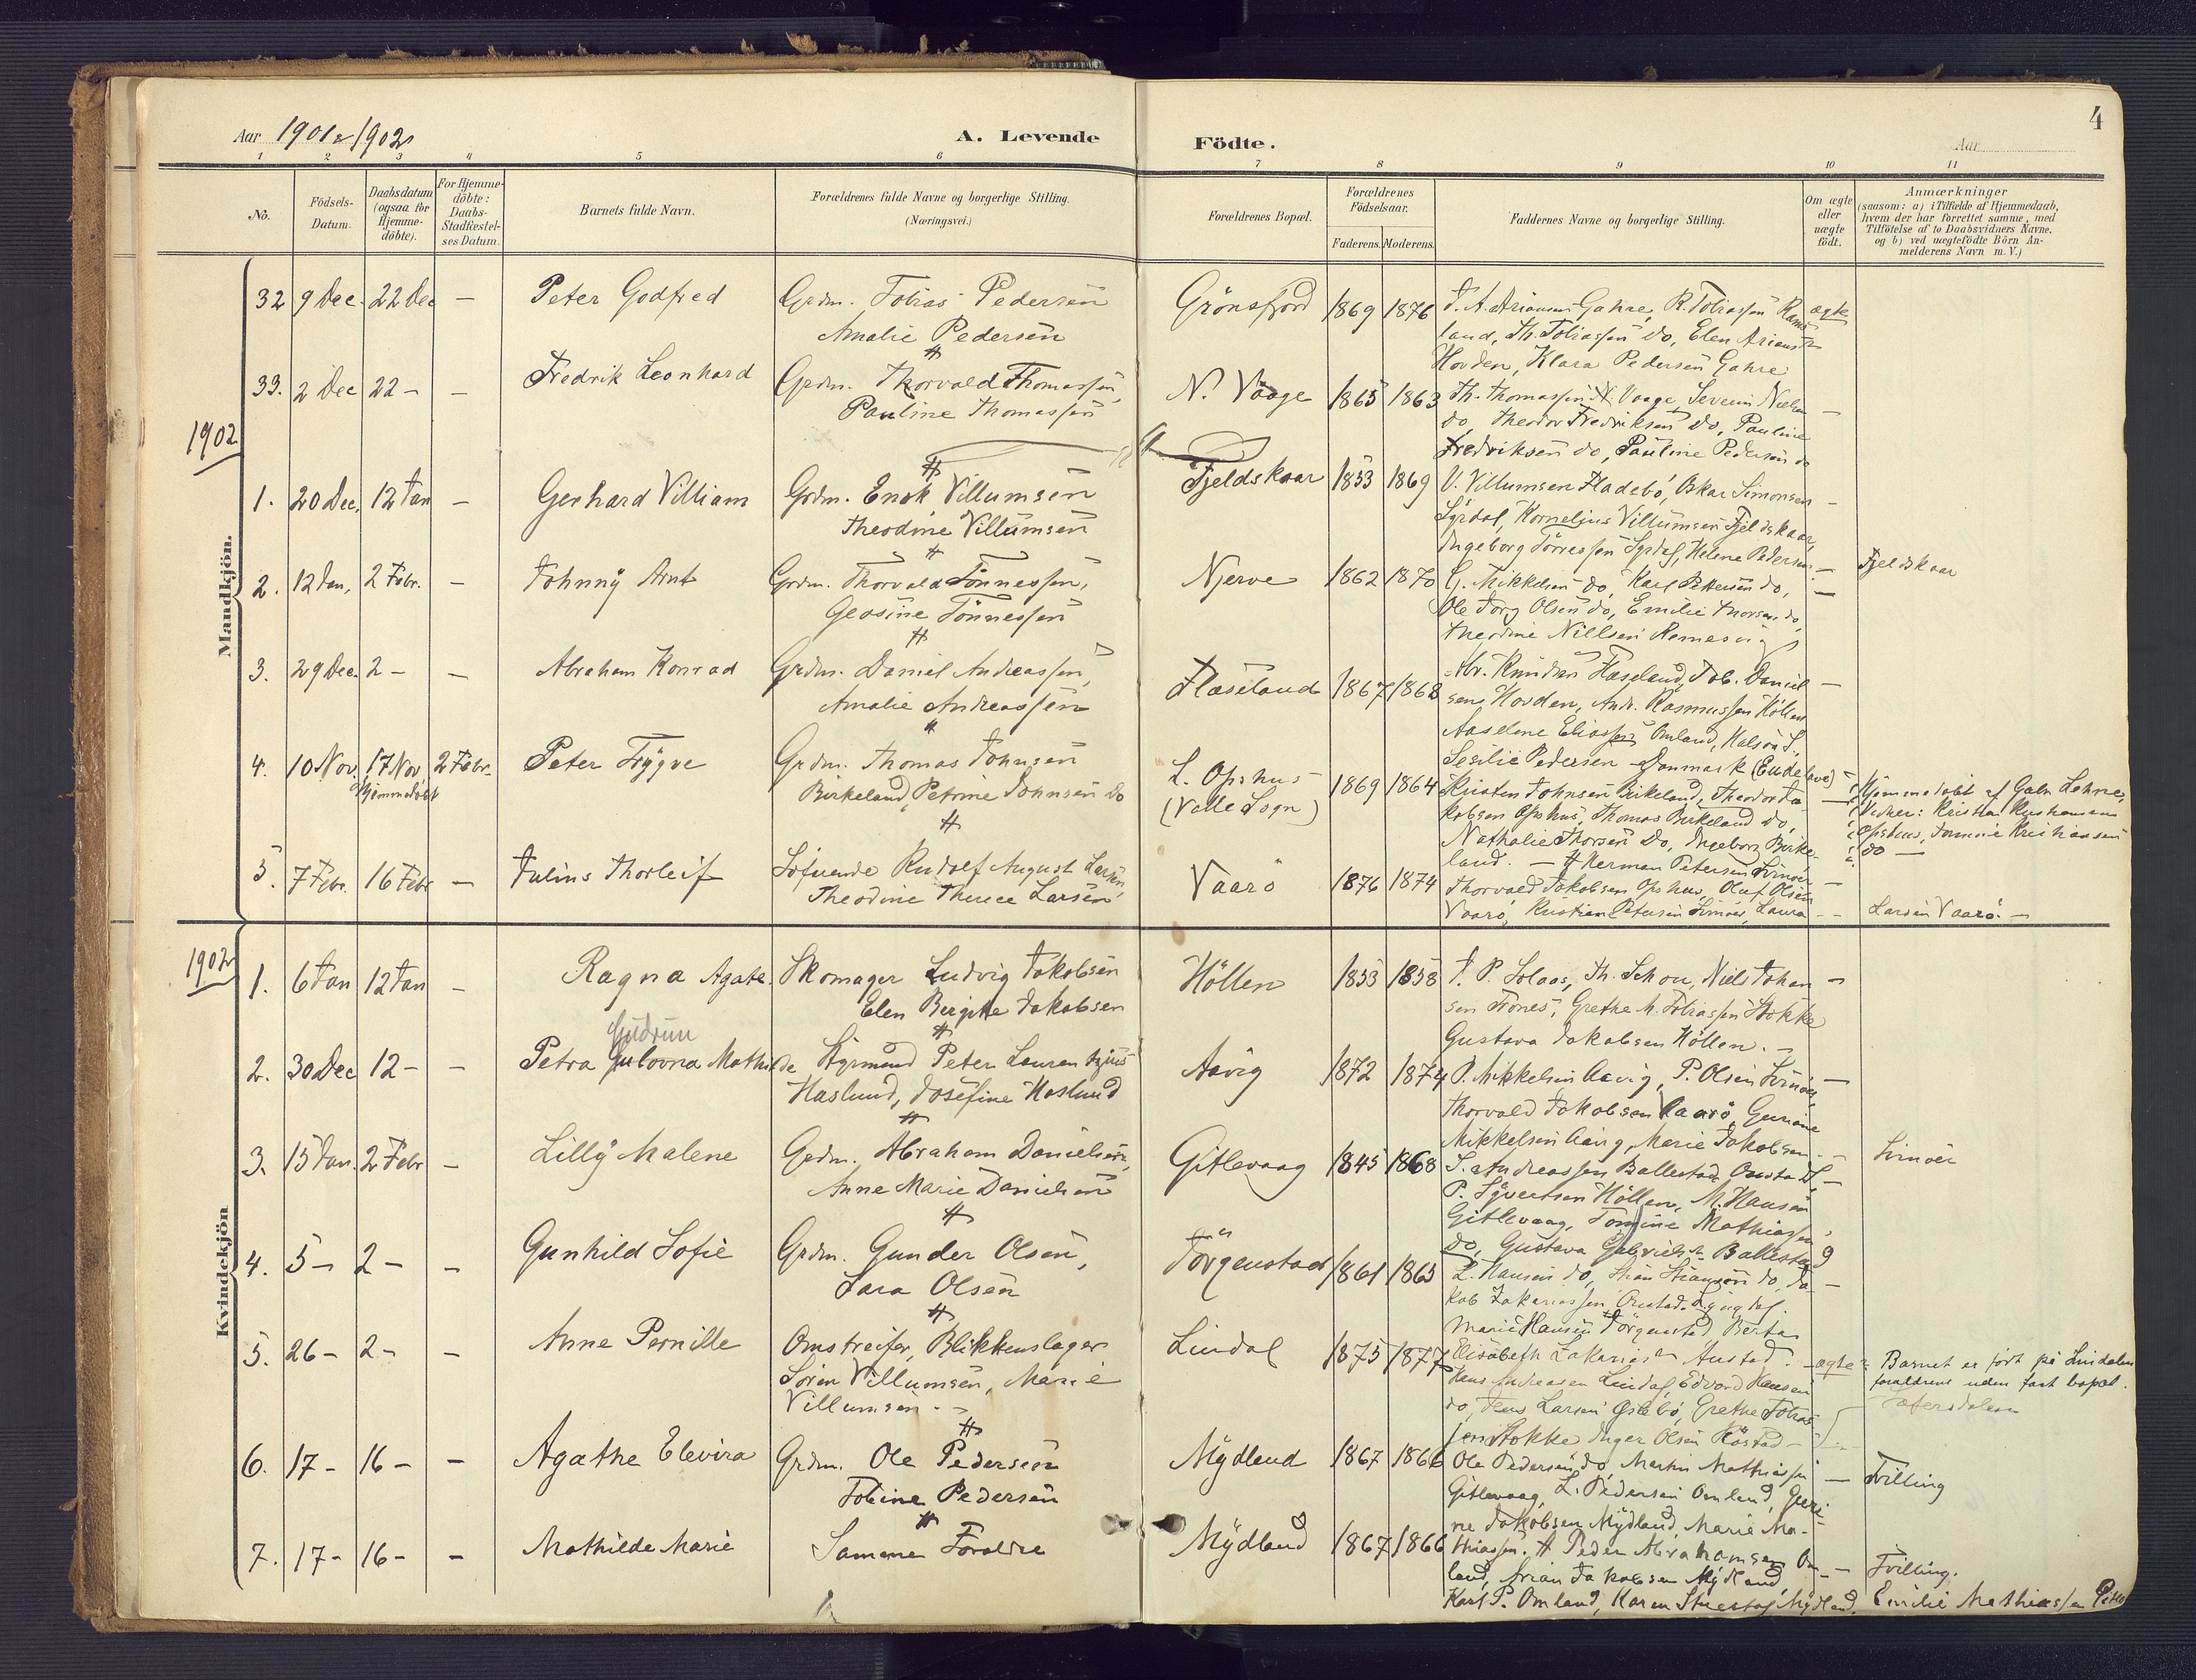 Aar 1901 & 1902
A. Levende Födte.
Aar
4
1 2 3 4 5 6 7 8 9 10 11
No.
Födsels-
Datum.
Daabsdatum
(ogsaa for
Hjemme-
döbte).
For Hjemme-
döbte:
Daabs-
Stadfæstel-
ses Datum.
Barnets fulde Navn.
Forældrenes fulde Navne og borgerlige Stilling.
(Næringsvei.)
Forældrenes Bopæl.
Forældrenes
Födselsaar.
Faderens. Moderens.
Faddernes Navne og borgerlige Stilling.
Om ægte
eller
uægte
födt.
Anmærkninger
(saasom: a) i Tilfælde af Hjemmedaab,
hvem der har forrettet samme, med
Tilföielse af to Daabsvidners Navne,
og b) ved uægtefödte Börn An-
melderens Navn m. V.)
Mandkjön.
32 9 Dec. 22 Dec — Peter Godfred
Grdm. Tobias Pedersen
Amalie Pedersen
Grönsfjord 1869 1876
Gahre, R. Tobiassen
land, Th. Tobiassen do, Elen
Hovden, Klara Pedersen Gahre
ægte
33. 2 Dec 22 — — Fredrik Leonhard
Grdm. Thorvald Thomassen,
Pauline Thomassen
N. Vaage 1865 1863
Th. Thomassen N. Vaage, Severin
do, Theodor Fredriksen do, Pauline
Fredriksen do, Pauline Pedersen do
—
1902
1. 20 Dec. 12 Jan — Gerhard Villiam
Grdm. Enok Villumsen
Theodine Villumsen
Fjeldskaar 1853 1869
V. Villumsen Fladebö, Oskar Simonsen
Syrdal, Kornelius Villumsen Fjeldskaar,
Ingeborg Törressen Syrdal, Helene Pedersen
—
Fjeldskaar
2. 12 Jan, 2 Febr. — Johnny Arnt
Grdm. Thorvald Tönnessen,
Geosine Tönnessen
Njerve 1862 1870
G. Mikkelsen do, Karl Pettersen do,
Ole Jorg Olsen do, Emilie Thorsen do,
Theodine Nillsen Remesvig
—
3. 29 Dec. 2 — — Abraham Konrad
Grdm. Daniel Andreassen,
Amalie Andreassen
Flaseland 1867 1868
Abr. Knudsen Flaseland, Tob. Daniel
sen Hovden, Andr. Rasmussen Höllen
Aaselene Eliassen Omland,
—
4. 10 Nov. 17 Nov. 2 Febr. Peter Trygve
Hjemmedöbt
Grdm. Thomas Johnsen
Birkeland, Petrine Johnsen do
L. Opshus
(Valle Sogn)
1869 1864
Sesilie Pedersen Danmark (Endelave)
Kristen Johnsen Birkeland, Theodor Ja-
kobsen Opshus, Thomas Birkeland do,
Nathalie Thorsen do, Ingeborg Birke-
land. —
Hjemmedöbt af Gabr. Lohne,
Vidner: Kristen Kristiansen
Opshus, Kristiansen
do —
5. 7 Febr. 16 Febr — Julius Thorleif
Söfarende Rudolf August Larsen,
Theodine Therece Larsen
Vaarö 1876 1874
Herman Petersen Svinör
Thorvald Jakobsen Opshus, Oluf Olsen
Vaarö, Kristian Petersen Svinör, Laura
—
Larsen Vaarö. —
Kvindekjön
1902
1. 6 Jan 12 Jan — Ragna Agate.
Skomager Ludvig Jakobsen
Elen Birgitte Jakobsen
Höllen 1853 1858
T. P. Solaas, Th. Schou, Niels Johan
sen Trones, Grethe M. Tobiassen Stokke
Gustava Jakobsen Höllen. —
—
Gudrun
2. 30 Dec 12 — — Petra Gulovna Mathilde
Styrmand Peter Lauren tzius
Haslund, Josefine Haslund
Aavig 1872 1874
P. Mikkelsen Aavig, P. Olsen Svinör,
Thorvald Jakobsen Vaarö, Guriane
Mikkelsen Aavig, Marie Jakobsen
—
Svinör
3. 15 Jan. 2 Febr — Lilly Malene
Grdm. Abraham Danielsen,
Anne Marie Danielsen
Gitlevaag 1845 1868
S. Andreassen Ballestad,
P. Syvertsen Höllen, M. Hansen
Gitlevaag, Tomine Mathiassen
do, Gustava Gabrielsen Ballestad
—
4. 5 — 2 — — Gunhild Sofie
Grdm. Gunder Olsen,
Sara Olsen
Jörgenstad 1861 1865
L. Hansen do, do, Ja-
kob Zakariassen Lyngdal.
Marie Hansen Jörgenstad, Berta
—
5. 26 — 2 — — Anne Pernille
Omstreifer, Blikkenslager
Sören Villumsen, Marie
Villumsen. —
Lindal 1875 1877
Elisabeth Zakariasd. Austad.
Hans Andreasen Lindal, Edvard Hansen
do, Jens Larsen do, Grethe Tobias
sen Stokke, Inger Olsen —
ægte
Barnet er födt på Lindalen
forældrene uden fast bopæl.
6. 17 — 16 — — Agathe Elevira
Grdm. Ole Pedersen
Tobine Pedersen
Mydland 1867 1866
Ole Pedersen do, Martin Mathiassen
Gitlevaag, L. Pedersen Omland, Guri-
ne Jakobsen Mydland, Marie Ma-
— Tvilling
7. 17 — 16 — — Mathilde Marie
Samme Foraldre
Mydland 1867 1866
thiassen. Peder Abrahamsen Om-
land, Arian Jakobsen Mydland,
Karl P. Omland, Karen Mydland.
— Tvilling.
Emilie Mathiassen